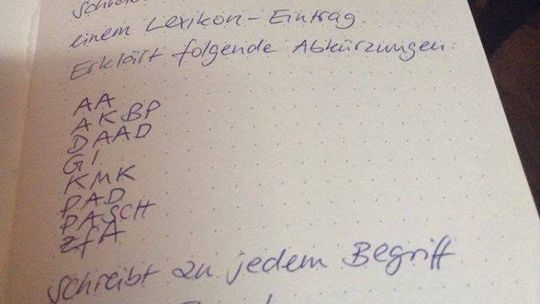 einem Lexikon-Eintrag.
Erklärt folgende Abkürzungen:
AA
AKBP
DAAD
GI
KMK
PAD
PASCH
ZfA
schreibt zu jedem Begriff